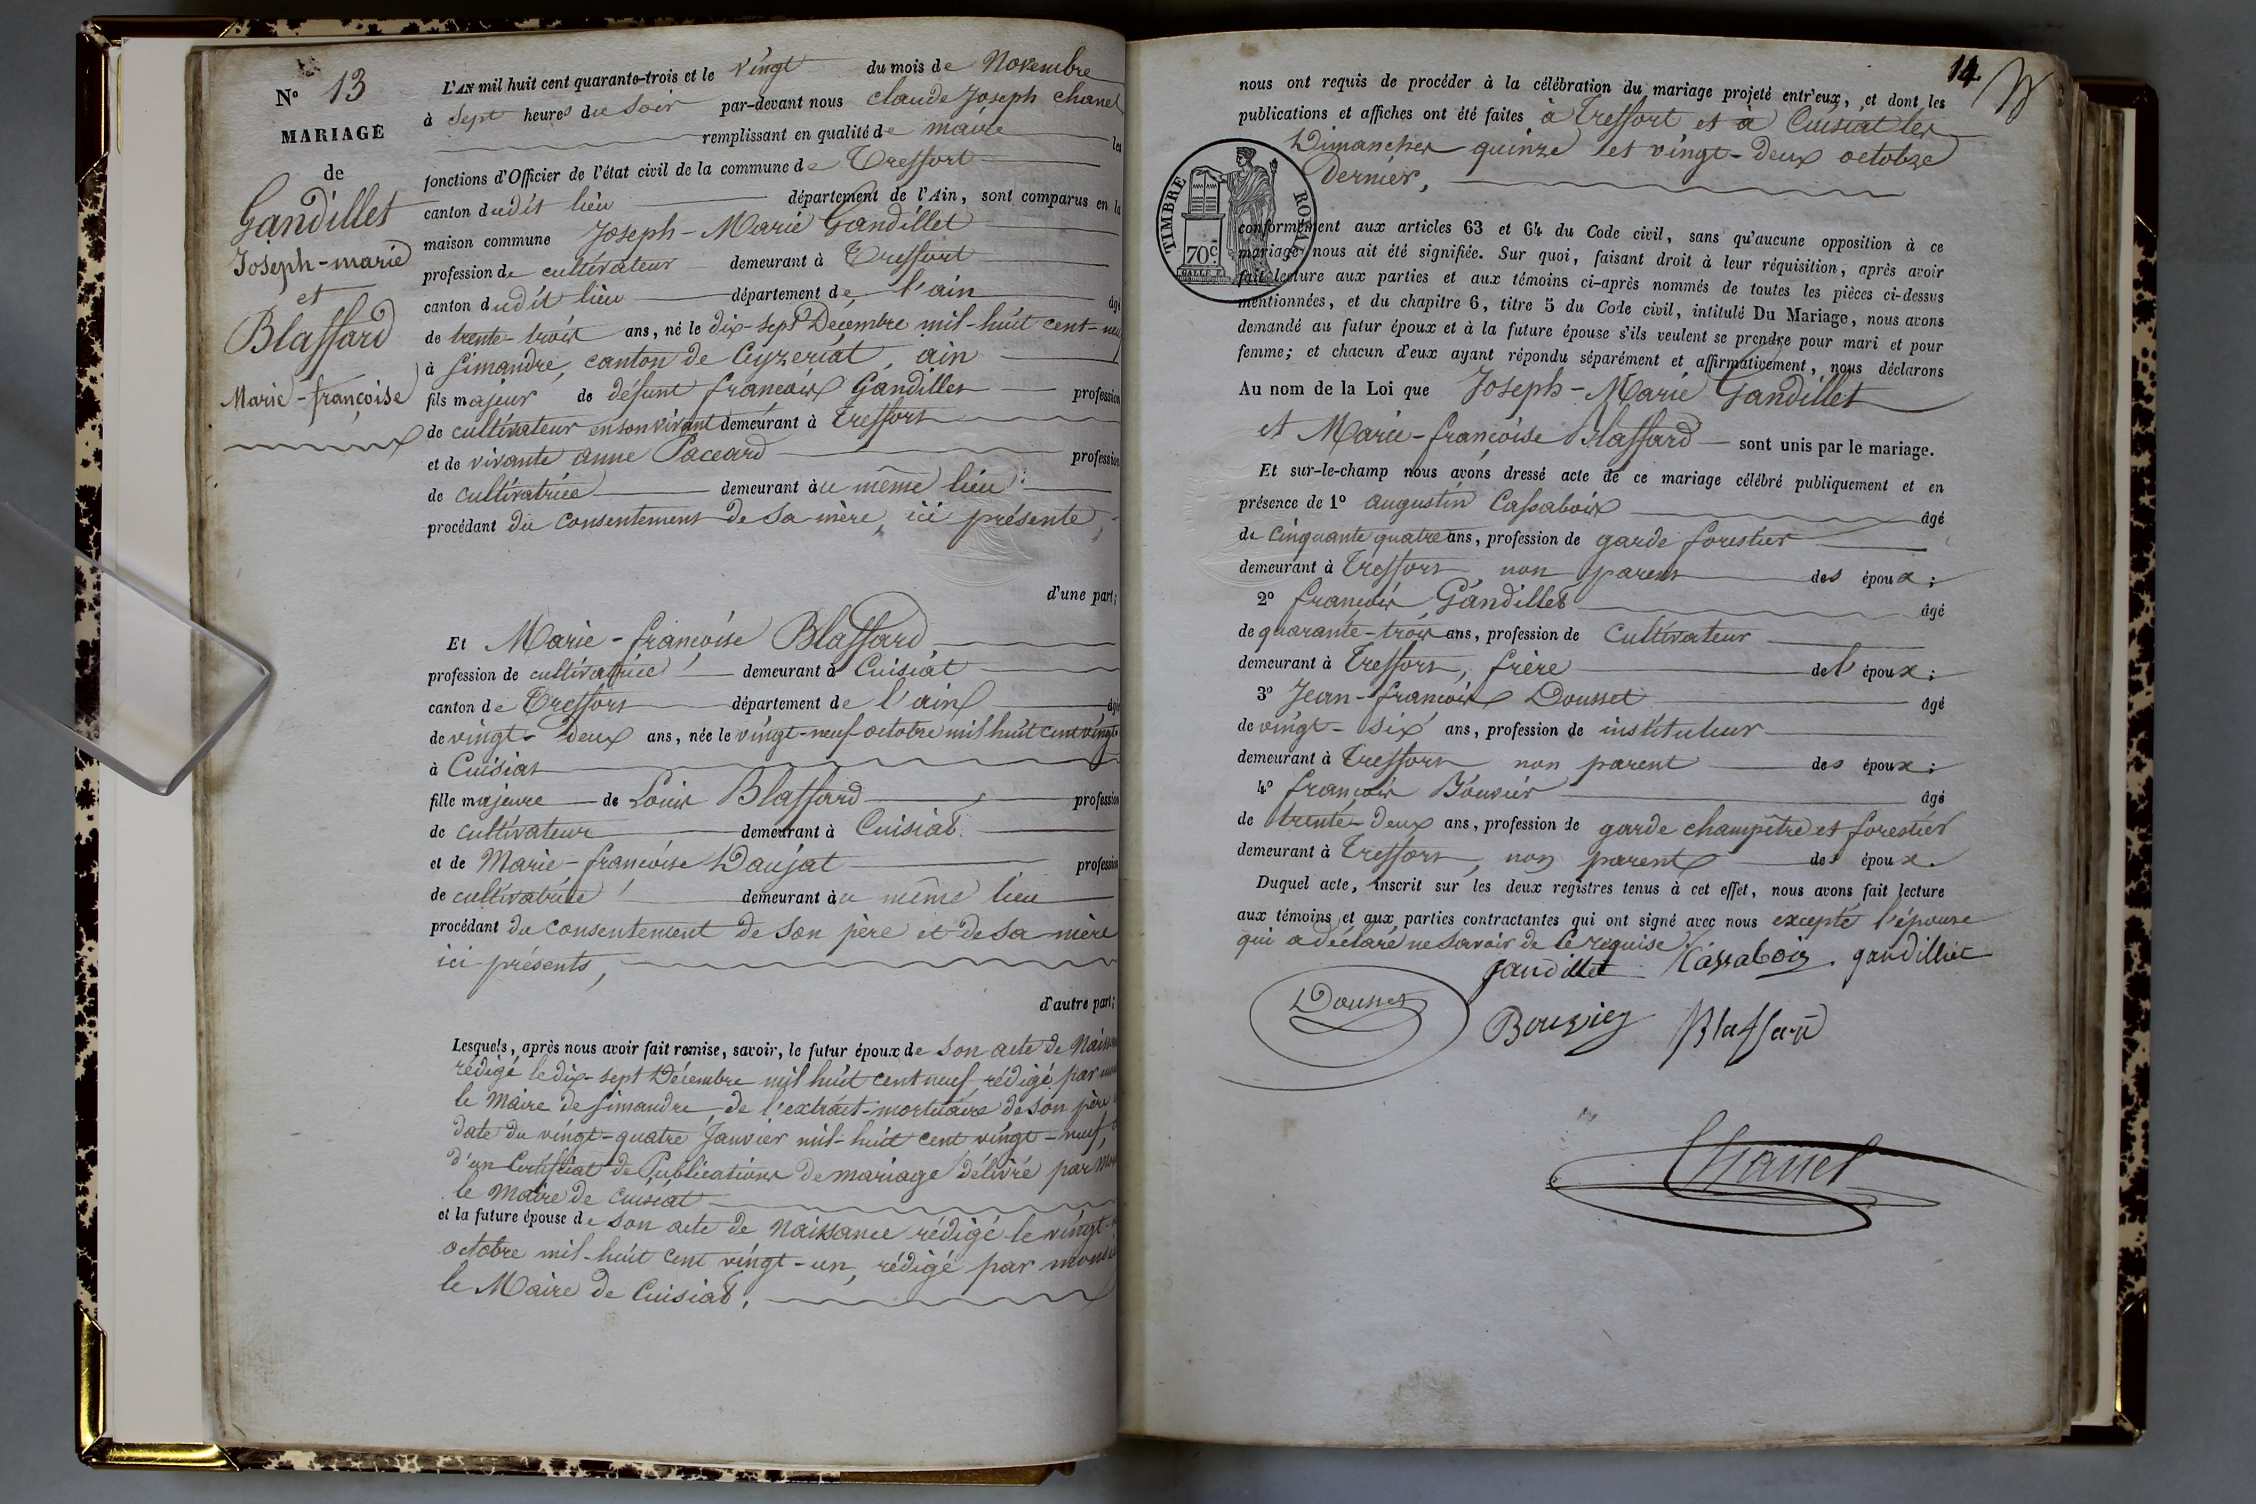 N° 13
MARIAGE
de
Gandillet
Joseph-marie
et
Blaffard
Marie-françoise
L'AN mil huit cent quarante-trois et le vingt du mois de Novembre
à sept heures du soir par-devant nous claude Joseph chanel
remplissant en qualité de maire les
fonctions d'Officier de l'état civil de la commune de Treffort
canton dudit lieu département de l'Ain, sont comparus en la
maison commune Joseph-Marie Gandillet
profession de cultivateur demeurant à Treffort
canton dudit lieu département de l'ain âgé
de trente-trois ans, né le dix-sept Décembre mil-huit cent-neuf
à Simandre, canton de Ceyzeriat, ain
fils majeur de défunt françois Gandillet profession
de cultivateur en son vivant demeurant à Treffort
et de vivante anne Paccard profession
de cultivatrice demeurant au même lieu
procédant du consentement de sa mère, ici présente,
d'une part;
Et Marie-françoise Blaffard
profession de cultivatrice demeurant à Cuisiat
canton de Treffort département de l'ain âgé
de vingt-deux ans, née le vingt-neuf octobre mil huit cent vingt
à Cuisiat
fille majeure de Louis Blaffard profession
de cultivateur demeurant à Cuisiat
et de Marie-françoise Daujat profession
de cultivatrice demeurant au même lieu
procédant du consentement de son père et de sa mère
ici présents,
d'autre part;
Lesquels, après nous avoir fait remise, savoir, le futur époux de son acte de Naiss
rédigé le dix-sept Décembre mil huit cent neuf rédigé par
le Maire de Simandre, de l'extrait-mortuaire de son père
date du vingt-quatre Janvier mil-huit cent vingt-neuf,
d'un Certificat de Publications de mariage délivré par
le Maire de Cuisiat
et la future épouse de son acte de Naissance rédigé le vingt-
octobre mil-huit cent vingt-un, rédigé par mons
le Maire de Cuisiat.
14
nous ont requis de procéder à la célébration du mariage projeté entr'eux, et dont les
publications et affiches ont été faites à Treffort et à Cuisiat les
Dimanches quinze et vingt-deux octobre
Dernier,
TIMBRE ROYAL
70c
conformément aux articles 63 et 64 du Code civil, sans qu'aucune opposition à ce
mariage nous ait été signifiée. Sur quoi, faisant droit à leur réquisition, après avoir
fait lecture aux parties et aux témoins ci-après nommés de toutes les pièces ci-dessus
mentionnées, et du chapitre 6, titre 5 du Code civil, intitulé Du Mariage, nous avons
demandé au futur époux et à la future épouse s'ils veulent se prendre pour mari et pour
femme; et chacun d'eux ayant répondu séparément et affirmativement, nous déclarons
Au nom de la Loi que Joseph-Marie Gandillet
et Marie-françoise Blaffard sont unis par le mariage.
Et sur-le-champ nous avons dressé acte de ce mariage célébré publiquement et en
présence de 1° augustin Cassabois âgé
de cinquante quatre ans, profession de garde forestier
demeurant à Treffort non parent des époux;
2° françois Gandillet âgé
de quarante-trois ans, profession de Cultivateur
demeurant à Treffort, frère de l'époux;
3° Jean-françois Dousset âgé
de vingt-six ans, profession de instituteur
demeurant à Treffort non parent des époux;
4° françois Bouvier âgé
de trente-deux ans, profession de garde champêtre et forestier
demeurant à Treffort, non parent des époux.
Duquel acte, inscrit sur les deux registres tenus à cet effet, nous avons fait lecture
aux témoins et aux parties contractantes qui ont signé avec nous excepté l'épouse
qui a déclaré ne savoir de ce requise.
gandillet Cassabois gandilliet
Dousset
Bouvier Blaffard
Chanel